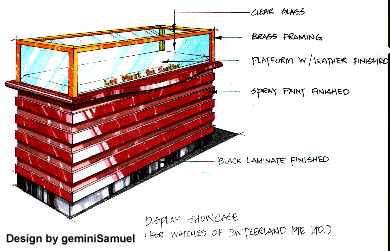 CLEAR GLASS
BRASS FRAMING
PLATFORM W/LEATHER FINISHED
SPRAY PAINT FINISHED
BLACK LAMINATE FINISHED
DISPLAY SHOWCASE
(FOR WATCHES OF SWITZERLAND PTE LTD.)
Design by geminiSamuel